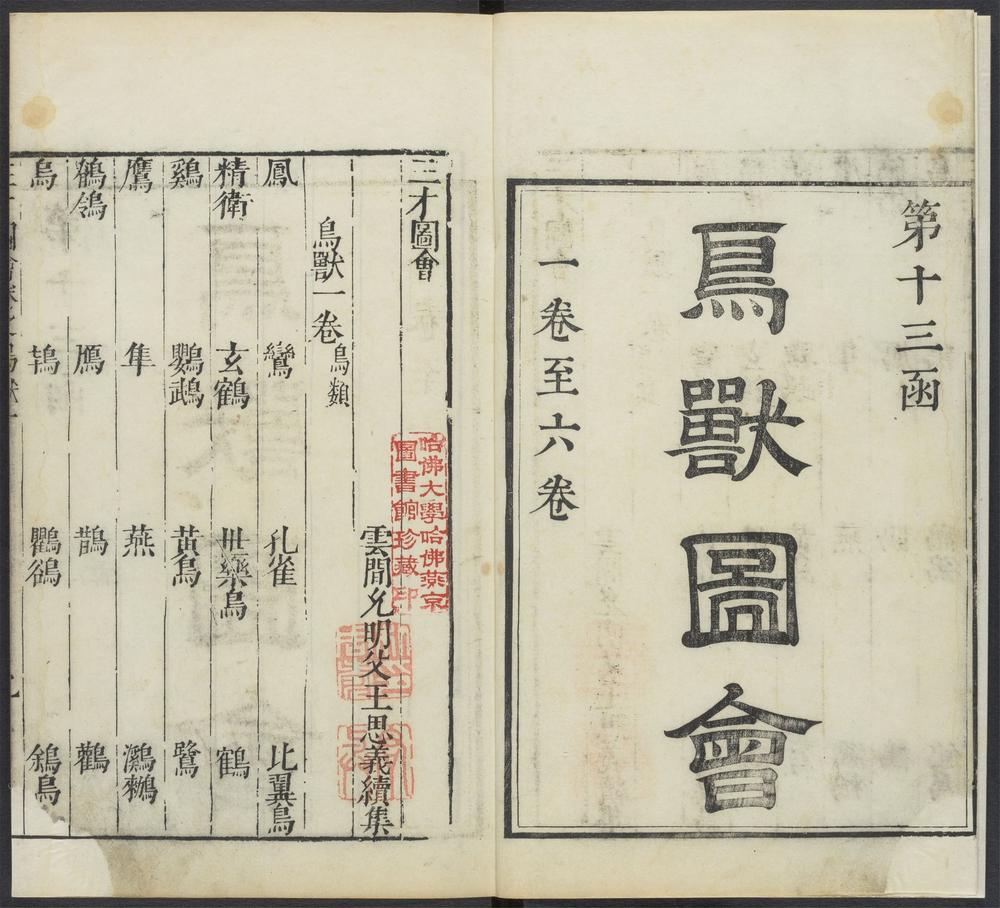 第十三函
鳥獸圖會
一卷至六卷
三才圖會
哈佛大學哈佛燕京
圖書館珍藏印
雲間允明父王思義續集
鳥獸一卷 鳥類
鳳 鸞 孔雀 比翼鳥
精衛 玄鶴 世樂鳥 鶴
鷄 鸚鵡 黃鳥 鷺
鷹 隼 燕 鸂鶒
鶺鴒 鴈 鵲 鸛
烏 鴇 鸜鵒 鶷鳥